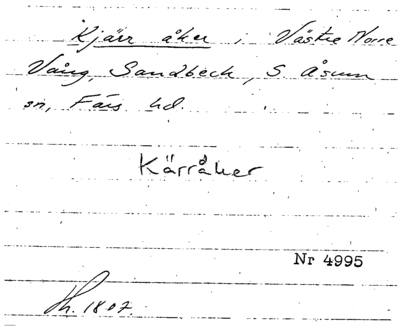 Kjärr åker i Västre Norre
Vång, Sandbeck, S. Åsum
sn, Färs hd.
Kärråker
Nr 4995
Th. 1807.